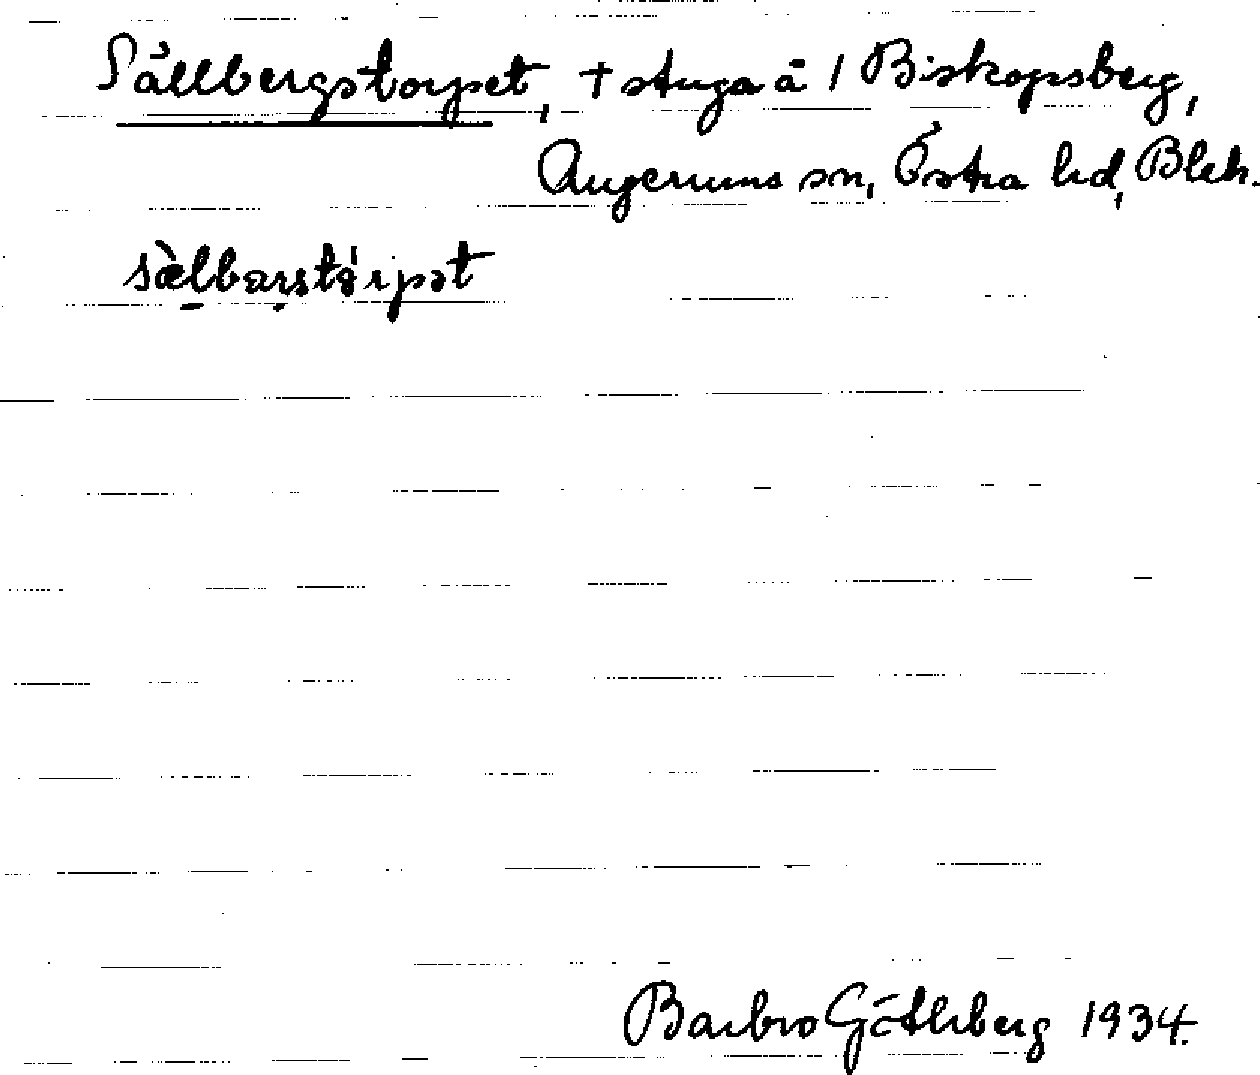 Sällbergstorpet, + stuga å / Biskopsberg,
Augerums sn, Östra hd, Blek.
sæ̀lbarstó̱rpət
Barbro Götlberg 1934.